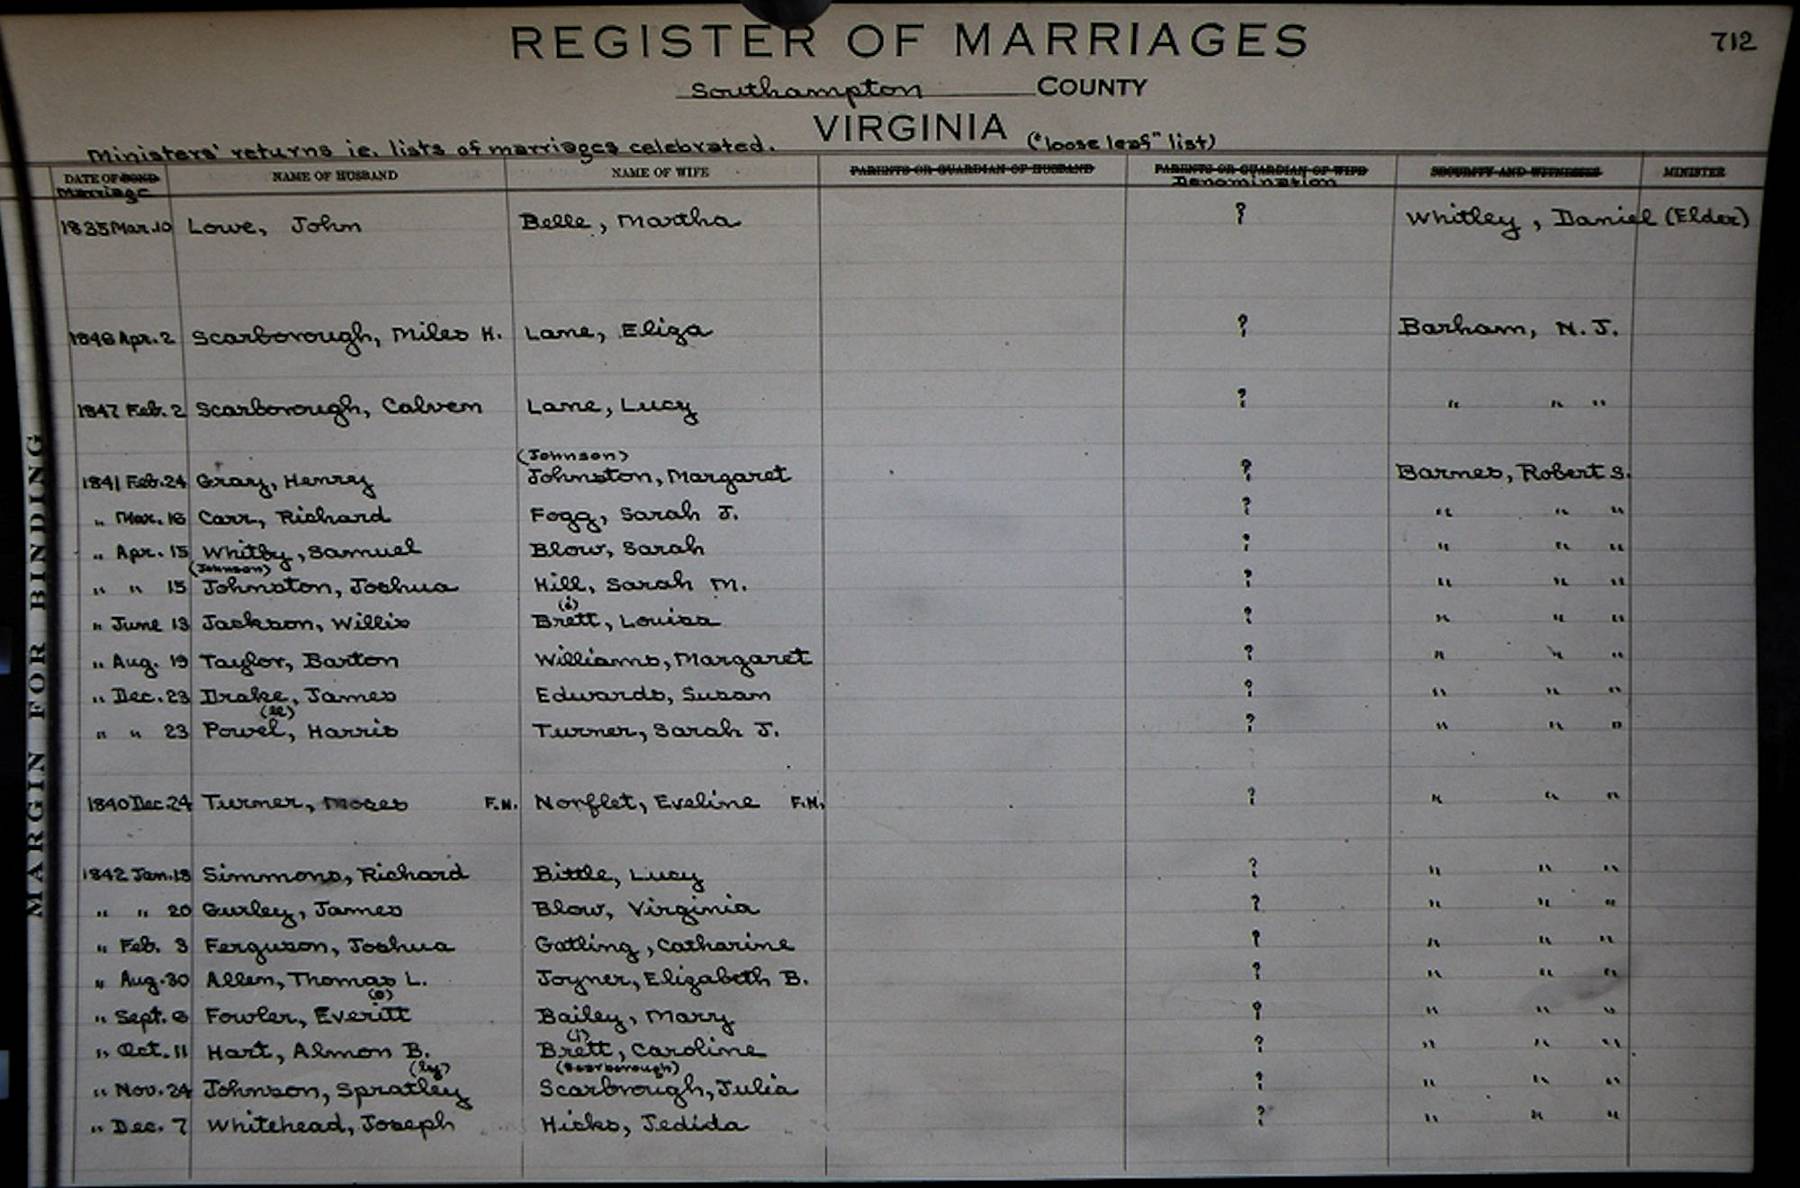 REGISTER OF MARRIAGES 712
Southampton COUNTY
VIRGINIA ("loose leaf" list)
Ministers' returns ie. lists of marriages celebrated.
DATE OF BOND NAME OF HUSBAND NAME OF WIFE PARENTS OR GUARDIAN OF HUSBAND PARENTS OR GUARDIAN OF WIFE SECURITY AND WITNESSES MINISTER
Marriage Denomination
1835 Mar. 10 Lowe, John Belle, Martha ? Whitley, Daniel (Elder)
1846 Apr. 2 Scarborough, Miles H. Lane, Eliza ? Barham, N. J.
1847 Feb. 2 Scarborough, Calvem Lane, Lucy ? " " "
(Johnson)
1841 Feb. 24 Gray, Henry Johnston, Margaret ? Barnes, Robert S.
" Mar. 16 Carr, Richard Fogg, Sarah J. ? " " "
" Apr. 15 Whitby, Samuel Blow, Sarah ? " " "
(Johnson)
" " 15 Johnston, Joshua Hill, Sarah M. ? " " "
(i)
" June 13 Jackson, Willis Brett, Louisa ? " " "
" Aug. 19 Taylor, Barton Williams, Margaret ? " " "
" Dec. 23 Drake, James Edwards, Susan ? " " "
(ll)
" " 23 Powel, Harris Turner, Sarah J. ? " " "
1840 Dec. 24 Turner, Moses F.N. Norflet, Eveline F.N. ? " " "
1842 Jan. 18 Simmons, Richard Bittle, Lucy ? " " "
" " 20 Gurley, James Blow, Virginia ? " " "
" Feb. 3 Ferguson, Joshua Gatling, Catharine ? " " "
" Aug. 30 Allen, Thomas L. Joyner, Elizabeth B. ? " " "
(e)
" Sept. 6 Fowler, Everitt Bailey, Mary ? " " "
(i)
" Oct. 11 Hart, Almon B. Brett, Caroline ? " " "
(ly) (Scarborough)
" Nov. 24 Johnson, Spratley Scarbrough, Julia ? " " "
" Dec. 7 Whitehead, Joseph Hicks, Jedida ? " " "
MARGIN FOR BINDING